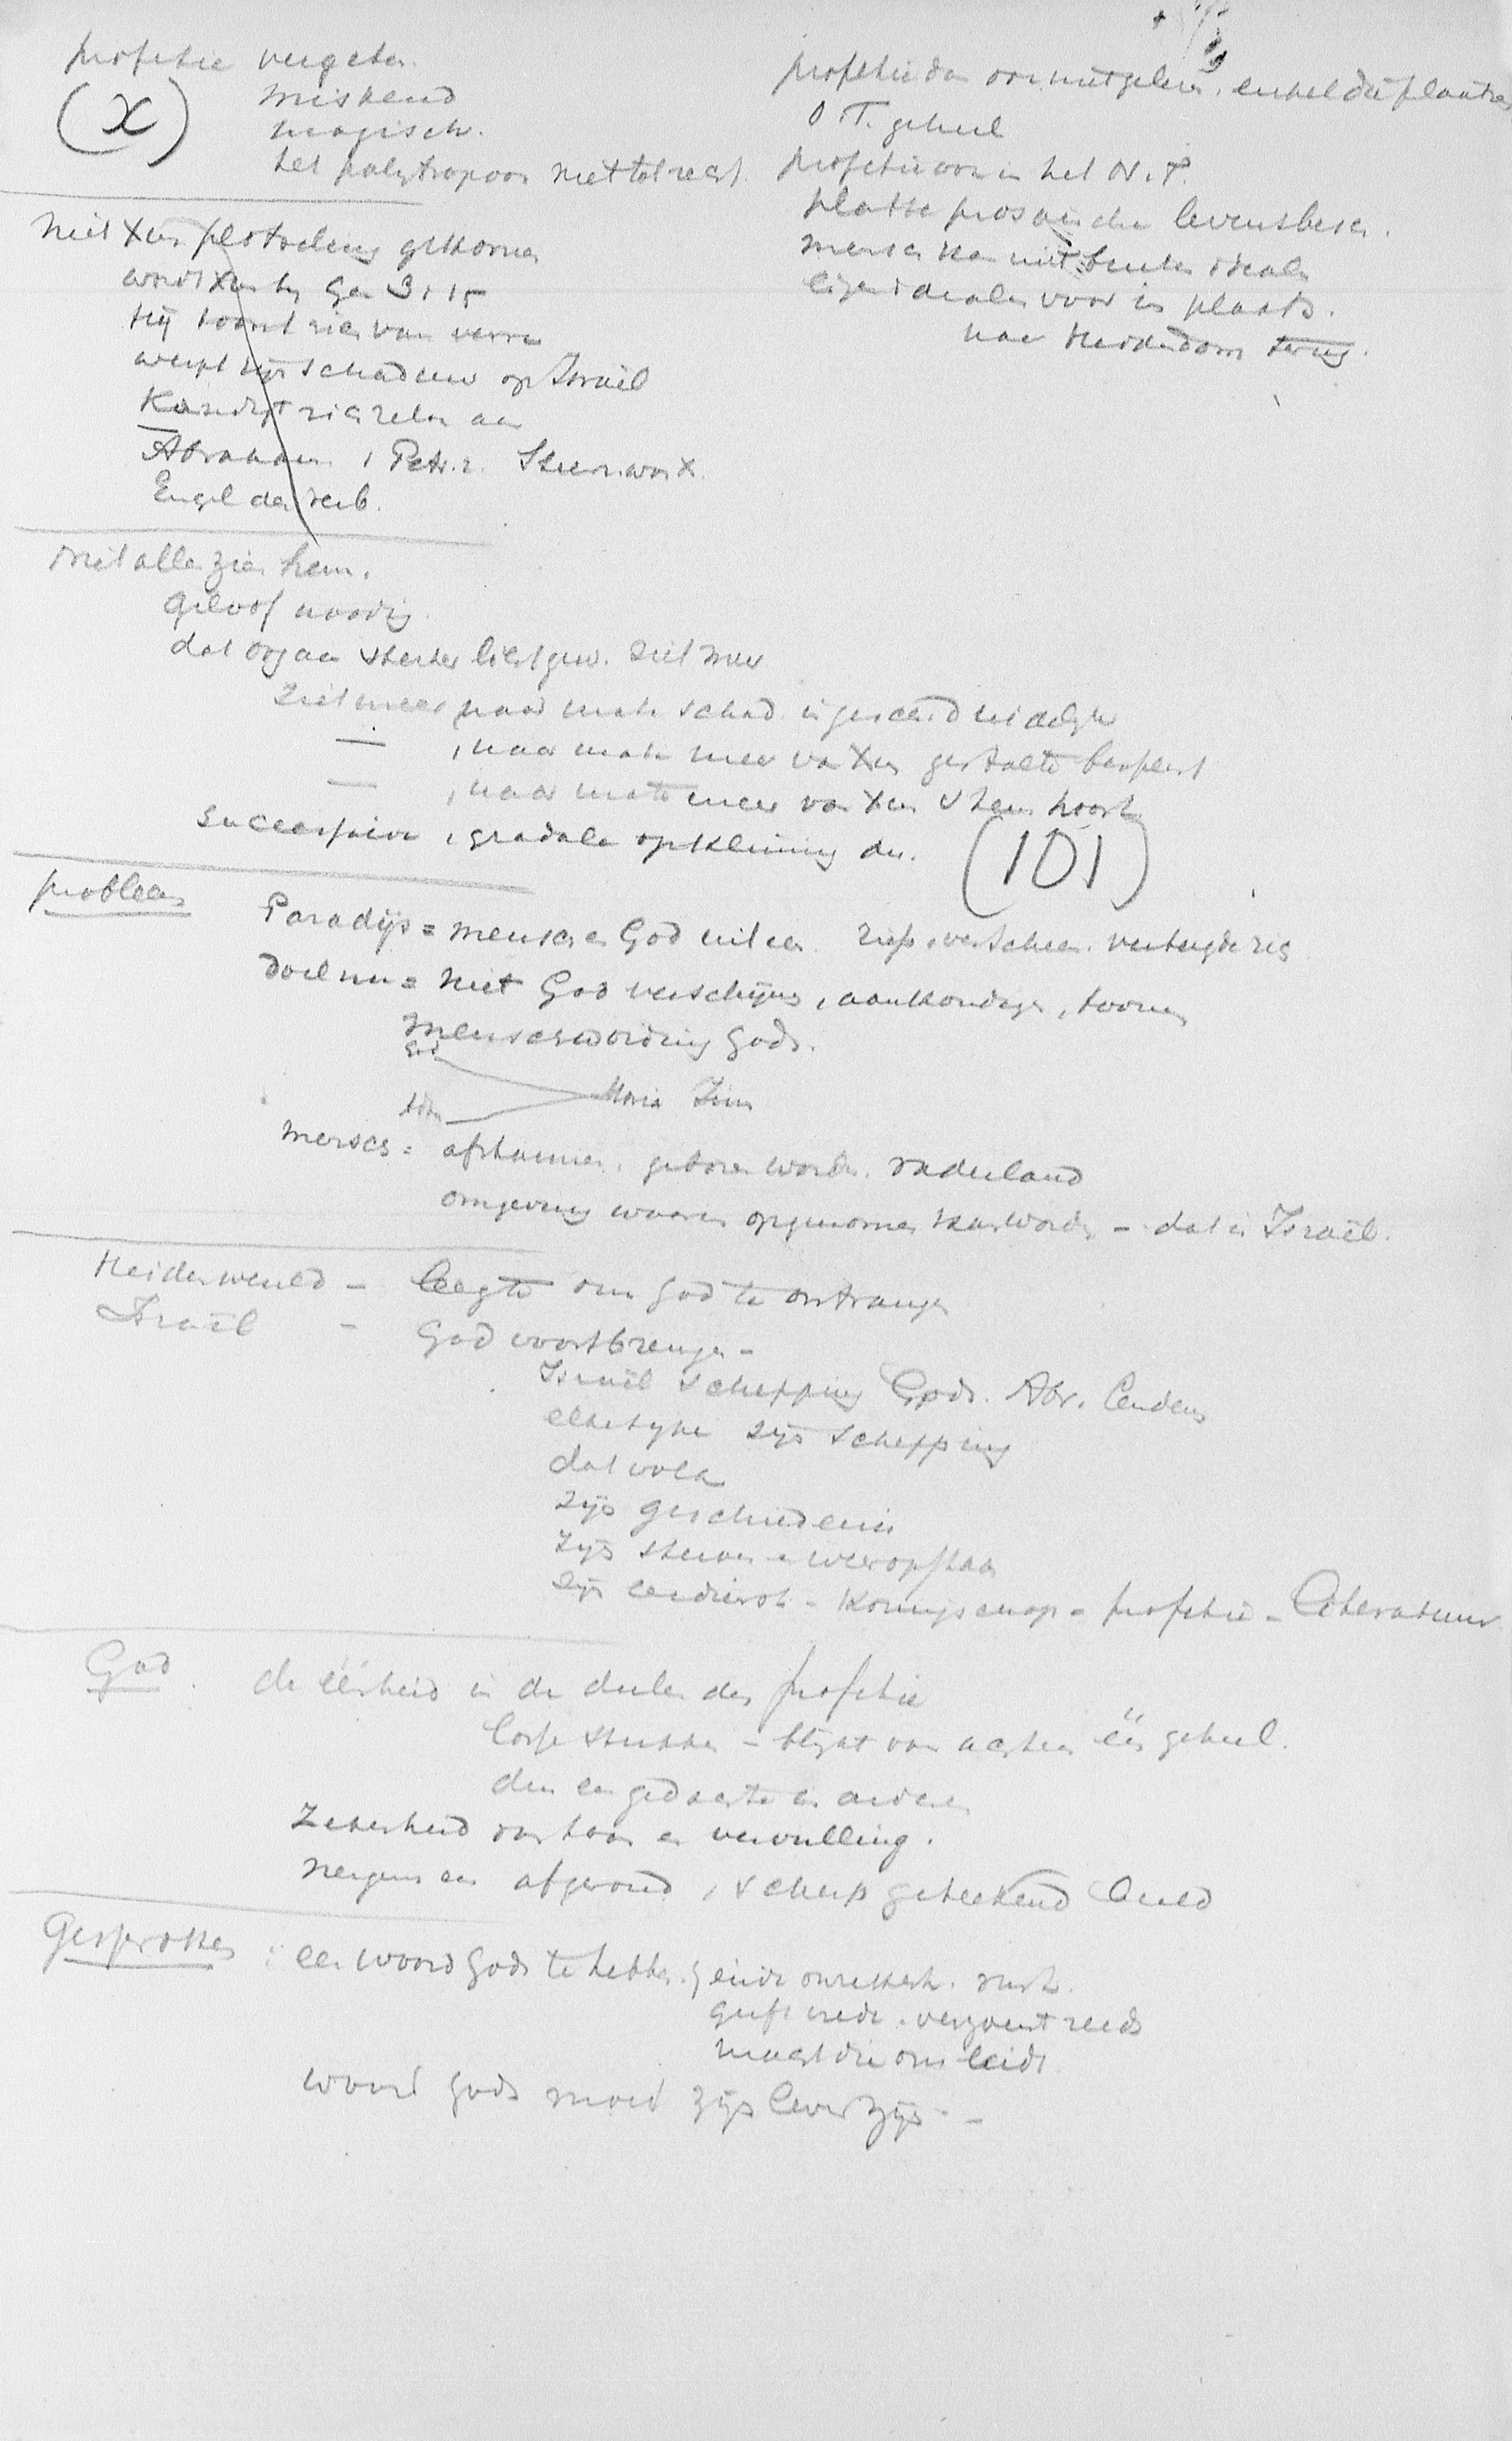 profetie vergeten.
miskend
(X) magisch.
het polytropoos niet tot recht.
profetie dan vooruitgelezen, enkel die plaatsen
O.T. geheel
profetie ook in het N.T.
platte prosaische levensbesch.
mensch kan niet buiten ideale
eigen idealen voor in plaats.
naar Heidendom terug.
Niet Xus plotseling gekomen
wordt Xus in Gen 3:15
Hij toont zich van verre
werpt zijn schaduw op Israël
Kondigt zich zelve aan
Abraham, 1 Petr. 2. Steenrots X.
Engel des verb.
Niet allen zien hem.
Geloof noodig.
dat orgaan sterker lichtgev. ziet meer
ziet meer naar mate schad. in gesch. duidelijker
— , naar mate meer van Xus gestalte
— , naar mate meer van Xus v hem hoort
Successieve, graduale opklimming dus.
(101)
probleem
Paradijs = mensch en God uiteen. riep, verscheen. verbergde zich
Doel nu = niet God verschijnen, aankondigen, toonen
menschwording Gods.
God
Adam
Maria Zion
Mensch = afstammen, geboren worden. vaderland
omgeving waarin opgenomen kan worden - dat is Israël.
Heidenwereld - leegte om God te ontvangen
Israël - God voortbrengen -
Israël schepping Gods. Abr. lendenen
elke type zijn schepping
dat volk
zijn geschiedenis
zijn sterven en weeropstaan
zijn eeredienst - Koningschap - profetie - Literatuur
God. de eenheid in de deelen der profetie
losse stukken - blijkt van achter één geheel.
den een gedachte en anderen
Zekerheid van haar en vervulling.
nergens een afgerond, scherp geteekend beeld
Gesproken: een woord Gods te hebben. einde onzekerh. rust.
geeft vrede. verzoent reeds
macht die ons leidt.
woord Gods moet zijn leven zijn -